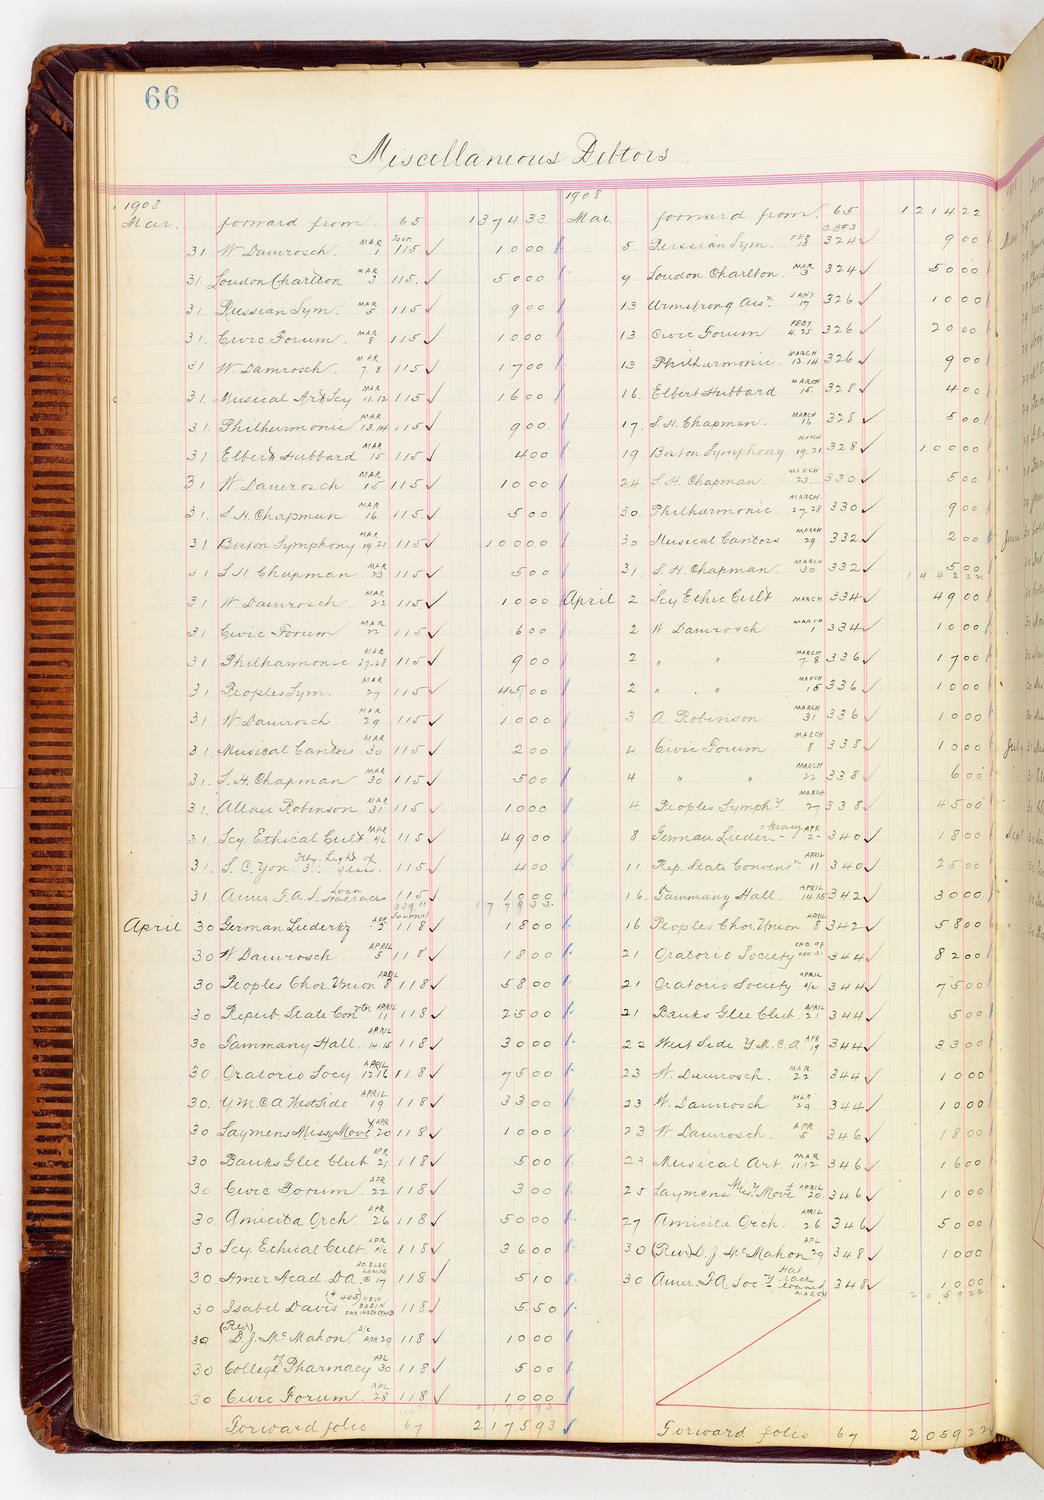 66
Miscellaneous Debtors
1908
Mar. forward from 65 1374 33
31 W Damrosch MAR 1 Jour. 115 ✓ 10 00
31. Loudon Charlton MAR 3 115. ✓ 50 00
31. Russian Sym. MAR 5 115 ✓ 9 00
31. Civic Forum. MAR 8 115 ✓ 10 00
31 W Damrosch. MAR 7.8 115 ✓ 17 00
31. Musical Art Scy MAR 11.12 115 ✓ 16 00
31. Philharmonic MAR. 13.14 115 ✓ 9 00
31 Elbert Hubbard MAR 15 115 ✓ 4 00
31 W Damrosch MAR 15 115 ✓ 10 00
31. S. H. Chapman MAR 16 115. ✓ 5 00
31 Boston Symphony MAR 19 21 115 ✓ 100 00
31 S H Chapman MAR 23 115 ✓ 5 00
31 W Damrosch MAR 22 115. ✓ 10 00
31 Civic Forum MAR 22 115 ✓ 6 00
31 Philharmonic MAR 27.28 115 ✓ 9 00
31 Peoples Sym. MAR 27 115 ✓ 45 00
31 W Damrosch MAR 29 115 ✓ 10 00
31. Musical Cantors MAR 30 115 ✓ 2 00
31. S. H. Chapman MAR 30 115 ✓ 5 00
31. Allan Robinson MAR 31 115 ✓ 10 00
31. Scy Ethical Cult MAR A/c 115 ✓ 49 00
31. S. C. Yon. Light of 115 ✓ 4 00
31 Amer F. A. S. Loan 115 ✓ 10 00
1779 33
April 30 German Liederkz APR 2 Journal 118 ✓ 18 00
30 W Damrosch. APRIL 5 118 ✓ 18 00
30 Peoples Chor. Union APRIL 8 118 ✓ 58 00
30 Repub State Convtn APRIL 11 118 ✓ 25 00
30 Tammany Hall. APRIL 14.15 118 ✓ 30 00
30 Oratorio Socy APRIL 12 16 118 ✓ 75 00
30. Y M C A West Side APRIL 19 118 ✓ 33 00
30 Laymens Missy Movt APR 20 118 ✓ 10 00
30 Banks Glee Club APR 21 118 ✓ 5 00
30 Civic Forum. APR 22 118 ✓ 3 00
30. Amicita Orch. APR. 26 118 ✓ 50 00
30 Scy. Ethical Cult. APR A/c 118 ✓ 36 00
30 Amer Acad. D A. 30 ELEC LAMPS @ 17 118 ✓ 5 10
30 Isabel Davis (# 405) NEW BASIN FOR WASHSTAND 118 ✓ 5 50
30 (Rev) D. J. McMahon APR 29 118 ✓ 10 00
30 College of Pharmacy APL 30 118 ✓ 5 00
30 Civic Forum. APL 28 118 ✓ 10 00
2175 93
Forward folio 67 2175 93 ✓
1908
Mar. forward from 65 1214 22
5. Russian Sym. FEB 13 C.B#3 324 ✓ 9 00
9 Loudon Charlton. MAR 3 324 ✓ 50 00
13 Armstrong Assn. JANY 17 326 ✓ 10 00
13 Civic Forum FEBY 4.25 326 ✓ 20 00
13 Philharmonic. MARCH 13.14 326 ✓ 9 00
16. Elbert Hubbard MARCH 15. 328 ✓ 4 00
17. S. H. Chapman. MARCH 16 328 ✓ 5 00
19 Boston Symphony MARCH 19.21 328 ✓ 100 00
24 S. H. Chapman MARCH 23. 330 ✓ 5 00
30. Philharmonic. MARCH. 27.28 330 ✓ 9 00
30 Musical Cantors MARCH 29 332 ✓ 2 00
31. S. H. Chapman. MARCH 30 332 ✓ 5 00
1442 22
April 2. Scy Ethic Cult MARCH 334 ✓ 49 00
2 W Damrosch MARCH 1 334 ✓ 10 00
2 " " MARCH 7.8 336 ✓ 17 00
2 " " MARCH 15 336 ✓ 10 00
3 A. Robinson MARCH 31 336 ✓ 10 00
4. Civic Forum. MARCH 8 338 ✓ 10 00
4 " " MARCH 22 338 ✓ 6 00
4 Peoples Symphy. MARCH 27 338 ✓ 45 00
8 German Lieder-kranz APR 2- 340 ✓ 18 00
11. Rep. State Conventn APRIL 11 340 ✓ 25 00
16. Tammany Hall. APRIL 14.15 342 ✓ 30 00
16 Peoples Chor. Union APRIL 8 342 ✓ 58 00
21 Oratorio Society CHG. OF DEC. 31 344 ✓ 82 00
21 Oratorio Society APRIL A/c 344 ✓ 75 00
21 Banks Glee Club. APRIL 21 344 ✓ 5 00
22 West Side Y. M. C. A. APR 19 344 ✓ 33 00
23 W. Damrosch. MAR. 22 344 ✓ 10 00
23 W. Damrosch MAR 29 344 ✓ 10 00
23 W Damrosch. APR 5 346 ✓ 18 00
23 Musical Art. MAR 11.12 346 ✓ 16 00
25 Laymens Misy. Movt APRIL 20. 346 ✓ 10 00
27 Amicita Orch. APRIL 26 346 ✓ 50 00
30 (Rev) D. J. McMahon APL 29 348 ✓ 10 00
30 Amer. F. A Soc-y Hat rack loaned MARCH 348 ✓ 10 00
2059 22
Forward folio 67 2059 22